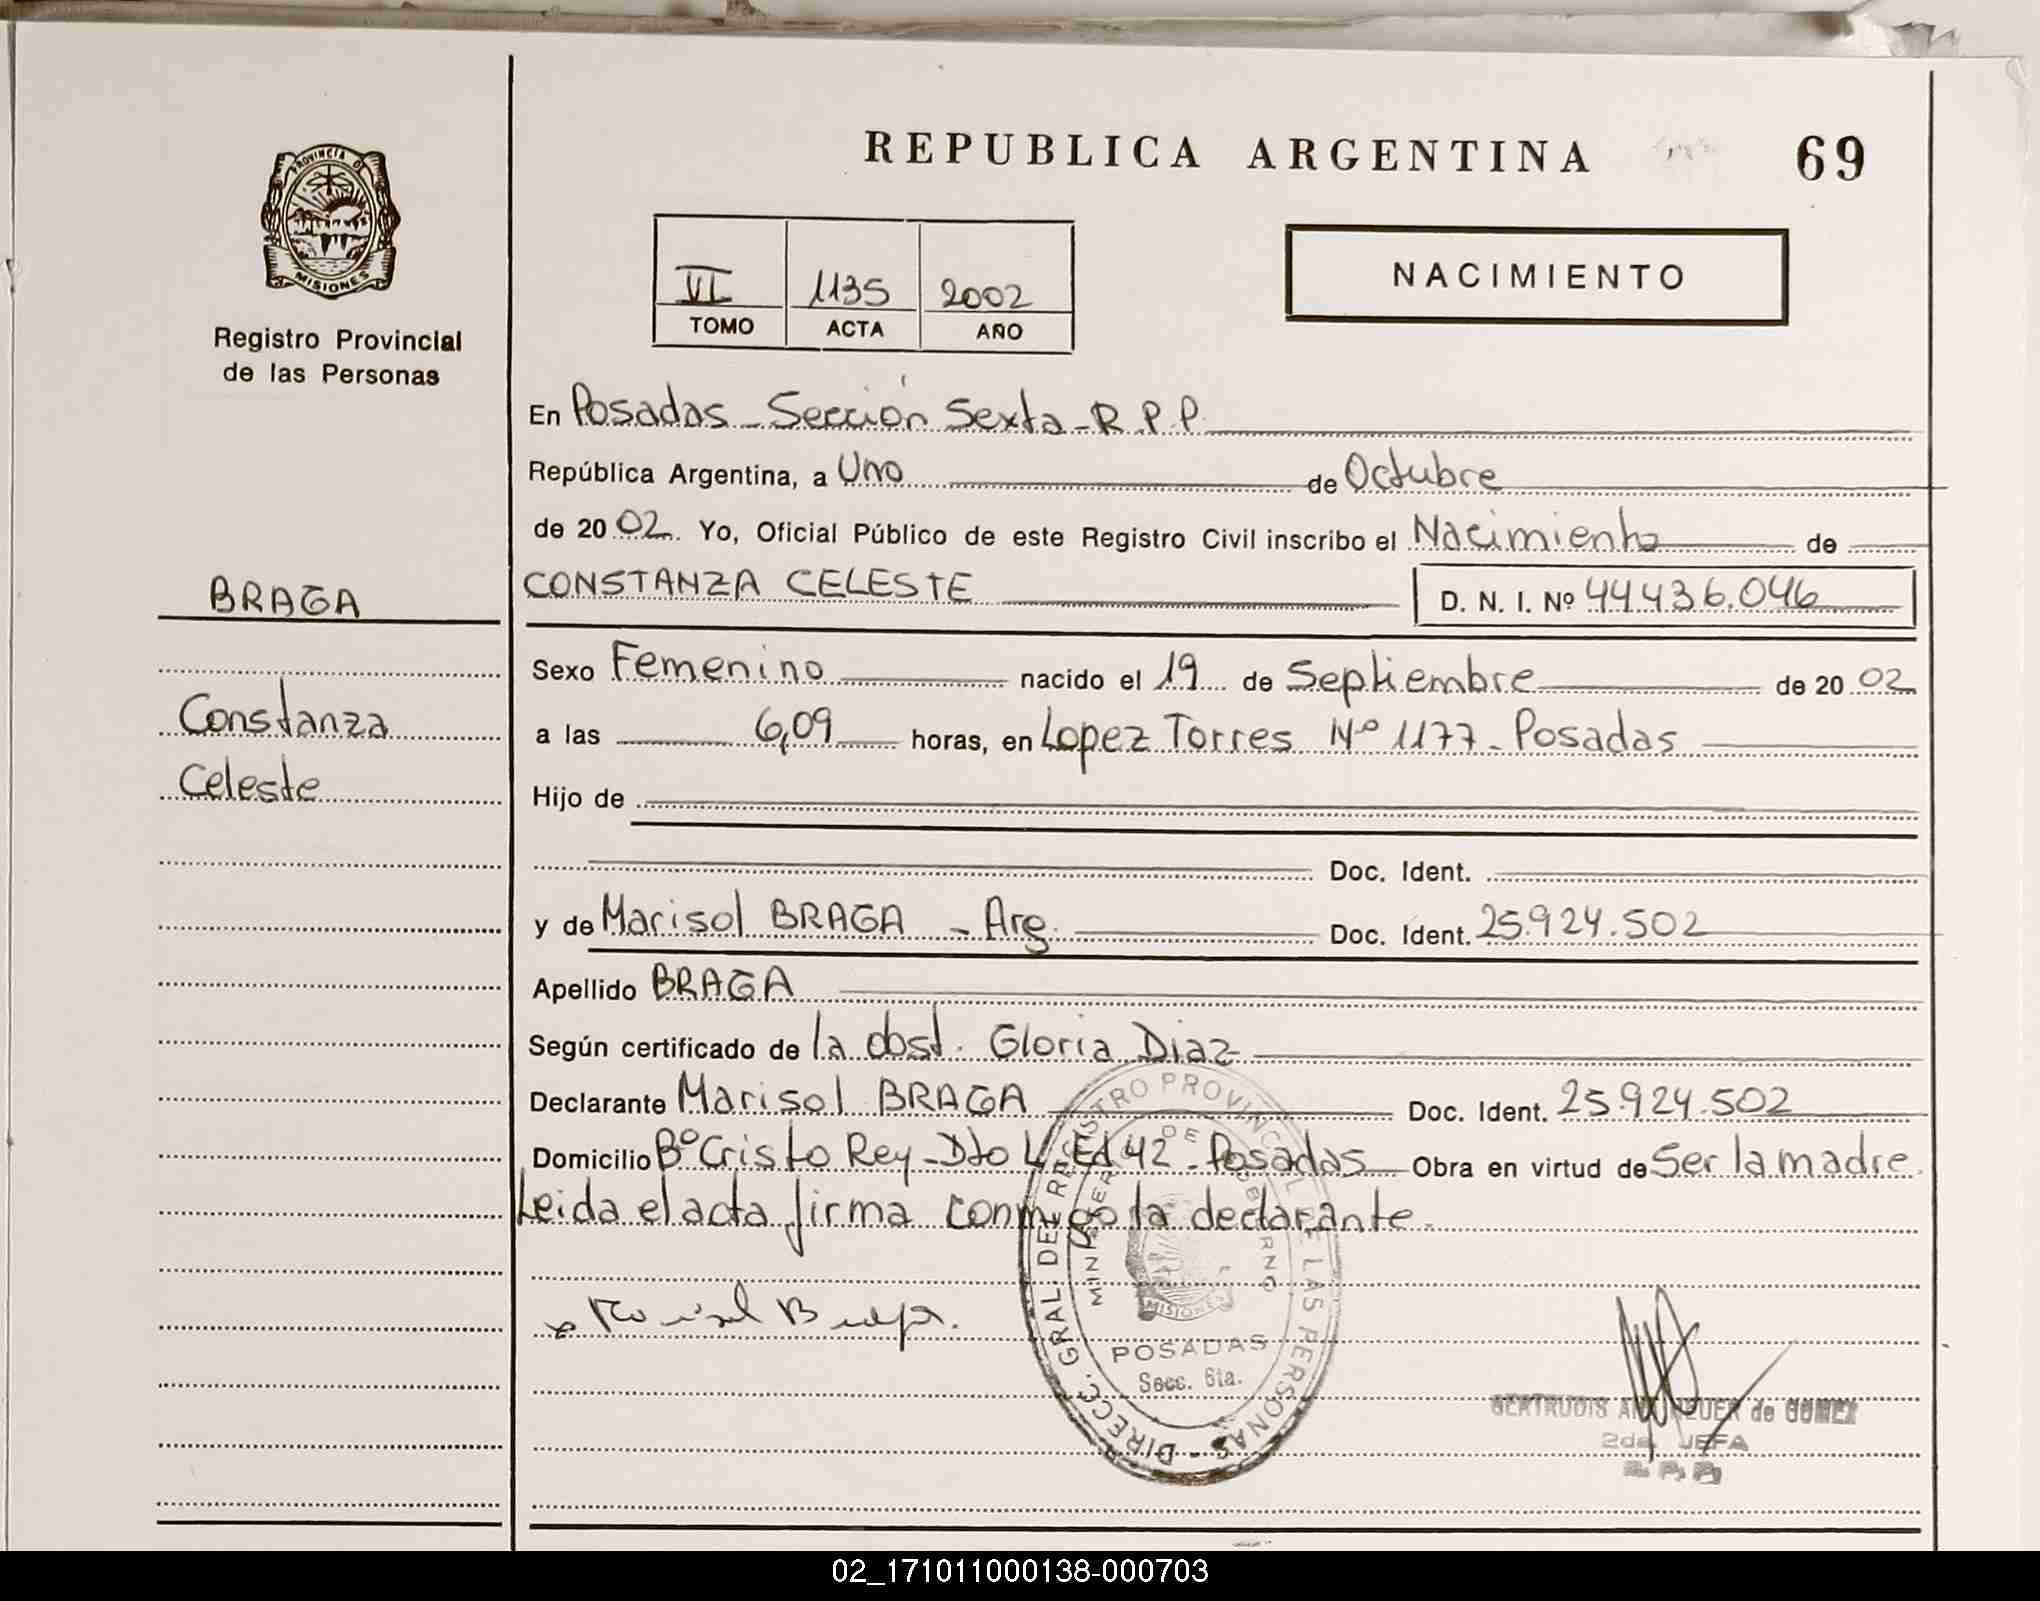 REPUBLICA ARGENTINA 69
PROVINCIA DE
MISIONES
Registro Provincial
de las Personas
VI 1135 2002
TOMO ACTA AÑO
NACIMIENTO
En Posadas - Sección Sexta - R.P.P.
República Argentina, a Uno de Octubre
de 2002. Yo, Oficial Público de este Registro Civil inscribo el Nacimiento de
BRAGA
CONSTANZA CELESTE D. N. I. Nº 44.436.046
Sexo Femenino nacido el 19 de Septiembre de 2002
Constanza
a las 6,09 horas, en Lopez Torres Nº 1177 - Posadas
Celeste
Hijo de
Doc. Ident.
y de Marisol BRAGA - Arg. Doc. Ident. 25.924.502
Apellido BRAGA
Según certificado de la obst. Gloria Diaz
Declarante Marisol BRAGA Doc. Ident. 25.924.502
Domicilio Bº Cristo Rey - Dto 4 Ed 42 - Posadas Obra en virtud de Ser la madre.
Leida el acta firma conmigo la declarante.
DIRECC. GRAL. DEL REGISTRO PROVINCIAL DE LAS PERSONAS
MINISTERIO DE GOBIERNO
MISIONES
POSADAS
Secc. 6ta.
GERTRUDIS de GOMEZ
2da. JEFA
R. P. P.
02_171011000138-000703